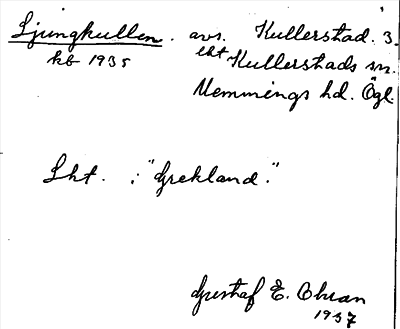 Ljungkullen. avs. Kullerstad. 3.
kb 1935 lht Kullerstads sn.
Memmings hd. Ögl.
Lht. i "Grekland."
Gustaf E. Ohran
1937